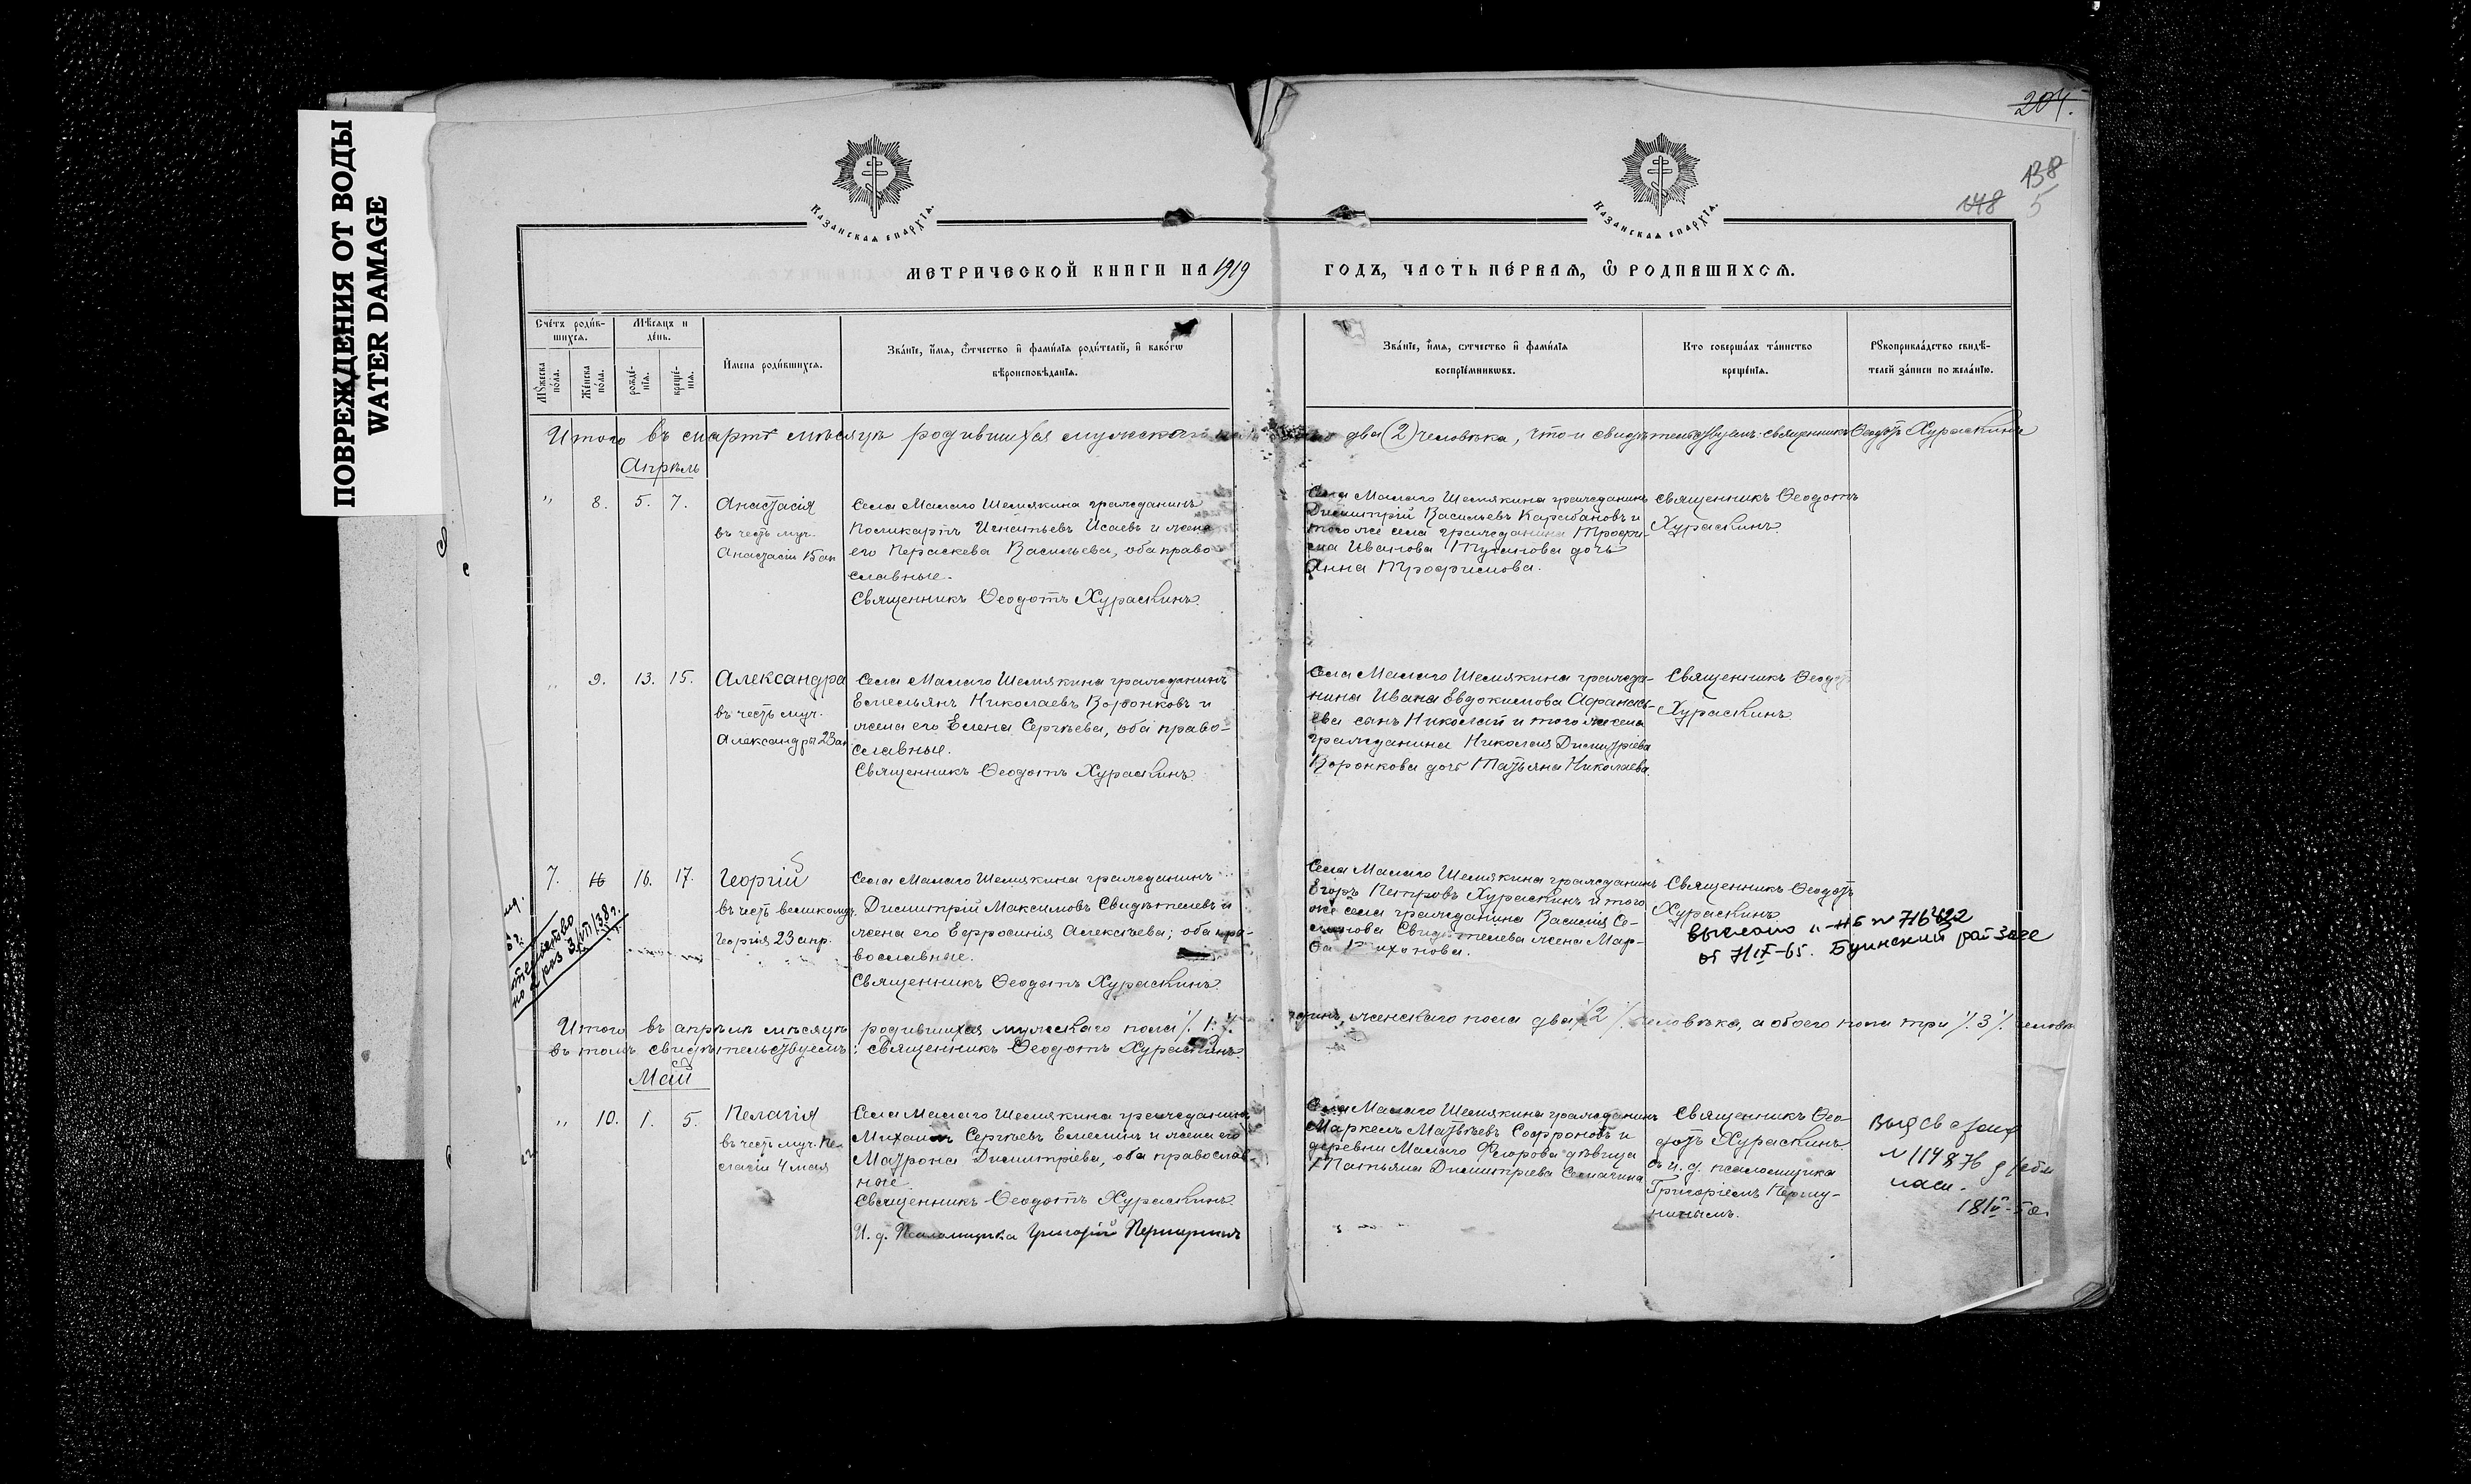 ПОВРЕЖДЕНИЯ ОТ ВОДЫ
WATER DAMAGE
204.
138
148 5
Казанская епархїа.
Казанская епархїа.
МЕТРИЧЕСКОЙ КНИГИ НА 1919
ГОДЪ, ЧАСТЬ ПЕ́РВАЯ, Ѿ РОДИВШИХСЯ.
Сче́тъ роди́в-
шихся.
Мѣ́сяцъ и
де́нь.
Мꙋжеска по́ла.
Же́нска по́ла.
рожде́-
нїя.
креще́-
нїя.
И҆мена роди́вшихся.
Зва́нїе, и҆́мя, ѻ҆́тчество и҆ фами́лїя роди́телей, и҆ како́гѡ
вѣ́роисповѣ́данїя.
Зва́нїе, и҆́мя, ѻтчество и҆ фами́лїя
воспрїе́мникѡвъ.
Кто соверша́лъ та́инство
креще́нїя.
Рꙋкоприкла́дство свидѣ́-
телей за́писи по жела́нїю.
Итого въ мартѣ мѣсяцѣ родившихся мужескаго
два (2) человѣка, что и свидѣтельствуемъ: священникъ Ѳеодотъ Хураскинъ
Апрѣль
" 8. 5. 7. Анастасія
въ честь муч.
Анастасіи 15 ап
Села Малаго Шемякина гражданинъ
Поликарпъ Игнатьевъ Исаевъ и жена
его Параскева Васильева, оба право
славные.
Священникъ Ѳеодотъ Хураскинъ.
Села Малаго Шемякина гражданинъ
Димитрій Васильевъ Карабановъ и
того же села гражданина Трофи-
ма Иванова дочь
Анна Трофимова.
священникъ Ѳеодотъ
Хураскинъ.
" 9. 13. 15. Александра
въ честь муч.
Александры 23 ап
Села Малаго Шемякина гражданинъ
Емельянъ Николаевъ Воронковъ и
жена его Елена Сергѣева, оба право-
славные.
Священникъ Ѳеодотъ Хураскинъ.
Села Малаго Шемякина гражда-
нина Ивана Евдокимова Афанась-
ева сынъ Николай и того же села
гражданина Николая Димитріева
Воронкова дочь Татьяна Николаева.
Священникъ Ѳеодотъ
Хураскинъ.
7. 16 16. 17. Георгій
въ честь великомуч.
Георгія 23 апр.
Села Малаго Шемякина гражданинъ
Димитрій Максимовъ Свидѣтелевъ и
жена его Евфросинія Алексѣева; оба пра-
вославные.
Священникъ Ѳеодотъ Хураскинъ.
Села Малаго Шемякина гражданинъ
Егоръ Петровъ Хураскинъ и того
же села гражданина Василія Се-
менова Свидѣтелева жена Мар-
ѳа Тиханова.
Священникъ Ѳеодотъ
Хураскинъ.
Буинский рай загс
Итого въ апрѣлѣ мѣсяцѣ родившихся мужескаго пола /. 1 ./
одинъ, женскаго пола два /. 2 ./ человѣка, а обоего пола три /. 3 ./ человѣк
въ томъ свидѣтельствуемъ: священникъ Ѳеодотъ Хураскинъ.
Май
" 10. 1. 5. Пелагія
въ честь муч. Пе-
лагіи 4 мая
Села Малаго Шемякина гражданинъ
Михаилъ Сергѣевъ Емелинъ и жена его
Матрона Димитріева, оба православ-
ные.
Священникъ Ѳеодотъ Хураскинъ.
И. д. Псаломщика Григорій
Села Малаго Шемякина гражданинъ
Маркелъ Матвѣевъ Софроновъ и
деревни Малаго дѣвица
Татьяна Димитріева
Священникъ Ѳео-
дотъ Хураскинъ.
съ и. д. псаломщика
Григоріемъ Першу-
нинымъ.